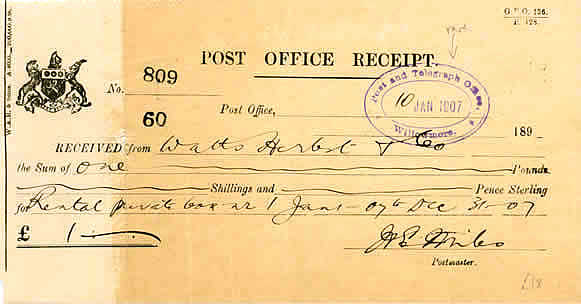 G.P.O. 126.
P. 128.
POST OFFICE RECEIPT.
No. 809
60
Post Office,
Post and Telegraph Office,
10 JAN 1907
Willowmore.
189
RECEIVED from Watts Herbst & Co
the Sum of One Pounds
Shillings and Pence Sterling
for Rental private box nr 1 Jany - 07 to Dec 31 - 07
£ 1
Postmaster.